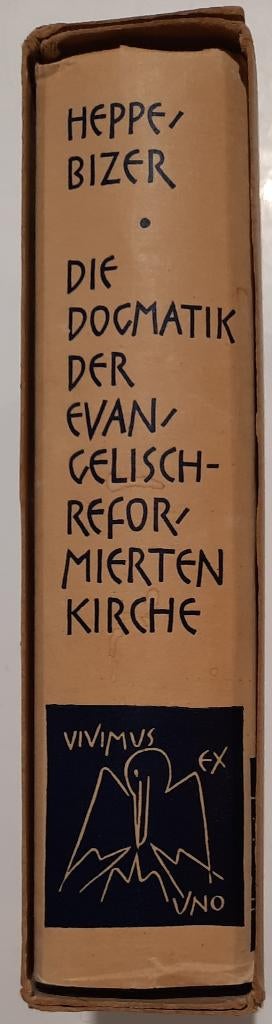 HEPPE/
BIZER
•
DIE
DOGMATIK
DER
EVAN/
GELISCH-
REFOR/
MIERTEN
KIRCHE
VIVIMUS
EX
UNO